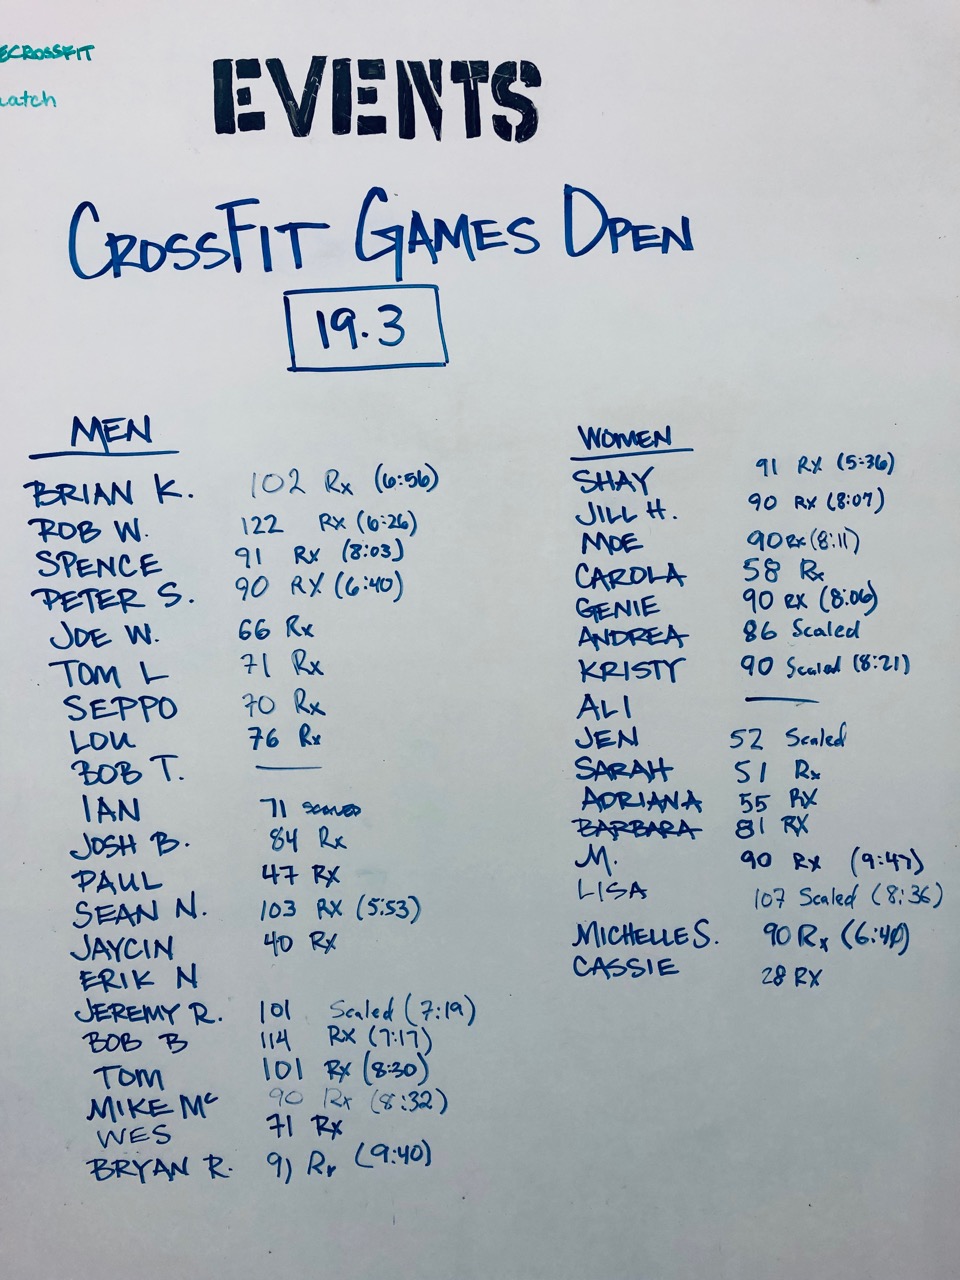 ECROSSFIT
EVENTS
CROSSFIT GAMES OPEN
19.3
MEN
BRIAN K. 102 Rx (6:56)
ROB W. 122 Rx (6:26)
SPENCE 91 Rx (8:03)
PETER S. 90 RX (6:40)
JOE W. 66 Rx
TOM L 71 Rx
SEPPO 70 Rx
LOU 76 Rx
BOB T. —
IAN 71 scaled
JOSH B. 84 Rx
PAUL 47 RX
SEAN N. 103 RX (5:53)
JAYCIN 40 RX
ERIK N
JEREMY R. 101 Scaled (7:19)
BOB B 114 RX (7:17)
TOM 101 RX (8:30)
MIKE Mc 90 Rx (8:32)
WES 71 RX
BRYAN R. 91 Rx (9:40)
WOMEN
SHAY 91 RX (5:36)
JILL H. 90 RX (8:07)
MOE 90 Rx (8:11)
CAROLA 58 Rx
GENIE 90 RX (8:06)
ANDREA 86 Scaled
KRISTY 90 Scaled (8:21)
ALI —
JEN 52 Scaled
SARAH 51 Rx
ADRIANA 55 RX
BARBARA 81 RX
M. 90 RX (9:47)
LISA 107 Scaled (8:36)
MICHELLE S. 90 Rx (6:40)
CASSIE 28 RX